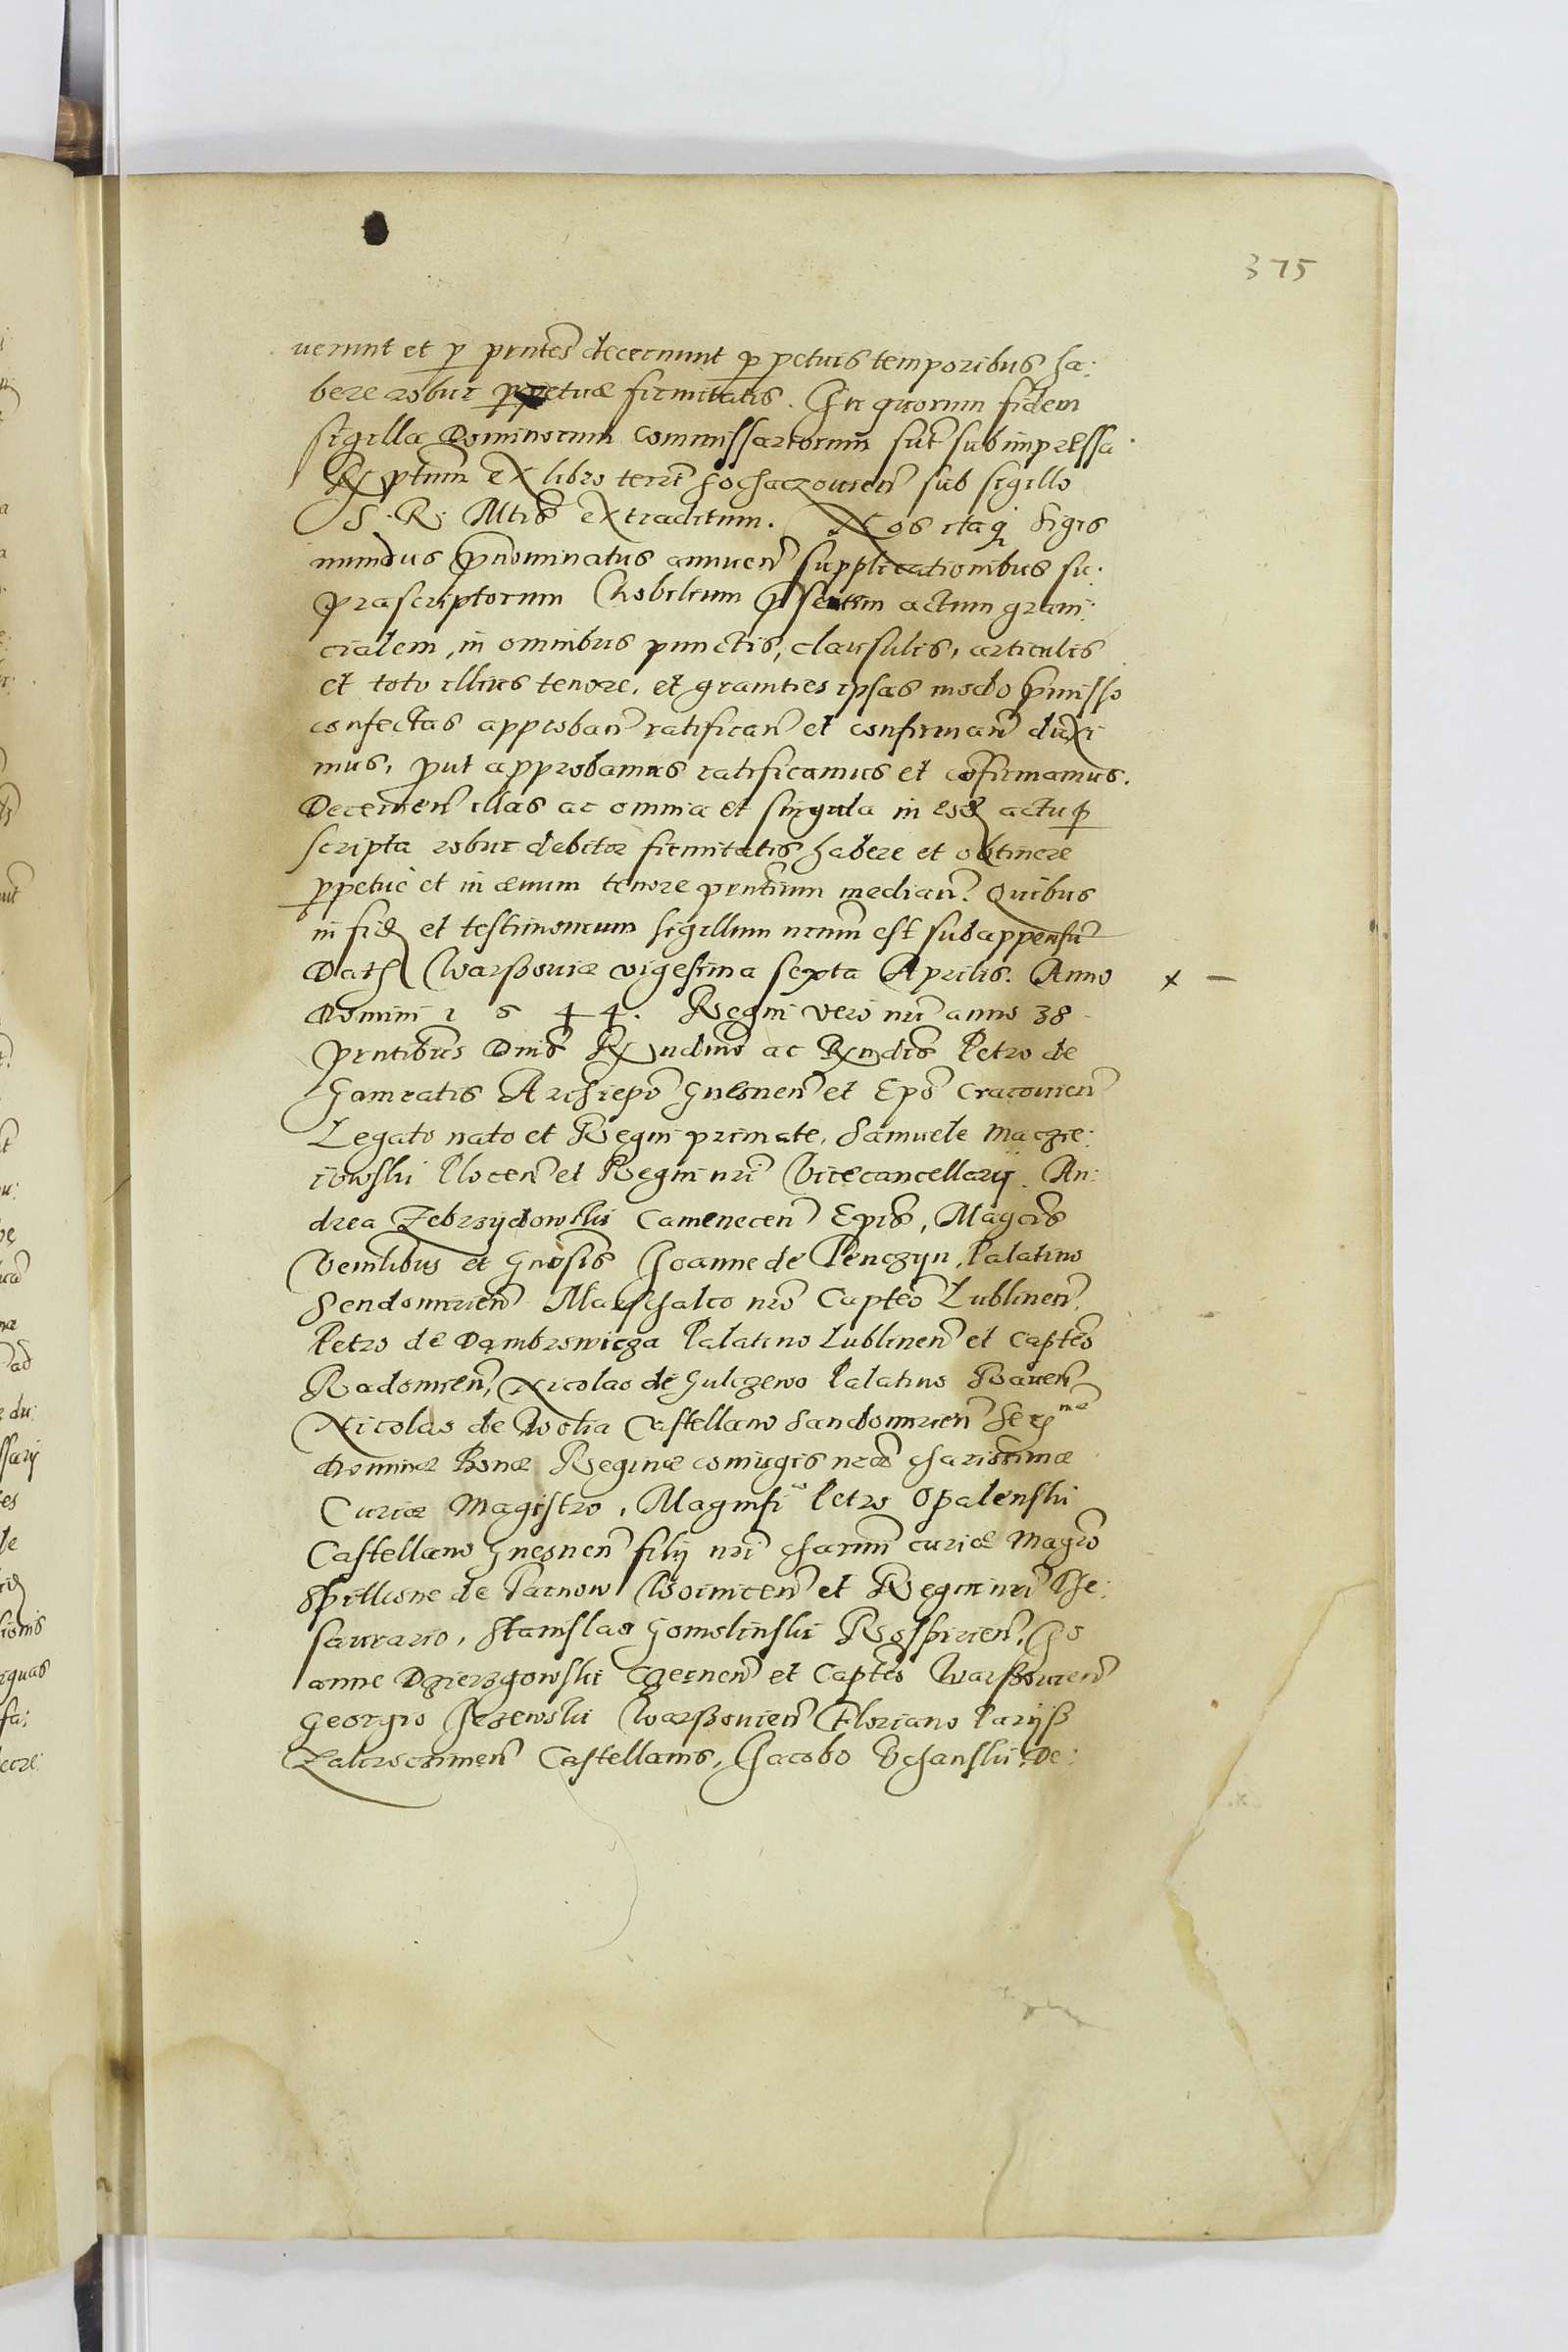 375
uerunt et p pntes decernunt ppetuis temporibus ha:
bere robur ppetuæ firmitatis. In quorum fidem
sigilla Dominorum commissariorum sut sub impressa.
Rptum ex libro terri sochaczouien sub sigillo
S. R. Mtis extraditum. Nos itaq Sigis
mundus pnominatus annuen supplicationibus su:
prascriptorum Nobilium psentem actum grani:
cialem, in omnibus punctis, clausulis, articulis
et toto illius tenore, et granities ipsas modo pmisso
confectas approban ratifican et confirman duxi
mus, put approbamus ratificamus et cofirmamus.
Decernen illas ac omnia et singula in eod actu p
scripta robur debitæ firmitatis habere et obtinere
ppetue et in æuum tenore pntium median. Quibus
in fid et testimonium sigillum nrum est subappensu
Dat Warßouiæ vigesima sexta Aprilis. Anno x —
Domini 1 5 4 4. Regni vero nri anno 38
pntibus Dnis Rndmo ac Rndis Petro de
Gamratis Archiepo Gnesnen et Epo Cracouien
Legato nato et Regni primate, Samuele Maczie:
iowski Plocen et Regni nri Vicecancellarij. An:
drea Zebrzijdowski Camenecen Epis, Magcis
Venlibus et Gnosis Joanne de Tenczyn, Palatino
Sendomirien Marschalco nro Capteo Lublinen,
Petro de Dambrowicza Palatino Lublinen et Capteo
Radomien, Nicolao de Gulczewo Palatino Rauen
Nicolao de Wolia Castellano Sandomirien Sermæ
Dominæ Bonæ Reginæ coniugis nræ charissimæ
Curiæ Magistro, Magnifico Petro Opalenski
Castellano Gnesnen filij nri charmi curiæ Magro
Spitkone de Tarnow Woinicen et Regni nri The:
saurario, Stanislao Gomolinski Rospirien, Jo
anne Dzierzgowski Czernen et Capteo Warßouien
Georgio Jezewski Warßouien Floriano Parijß
Zakroczimen Castellanis, Jacobo Vchanski De: